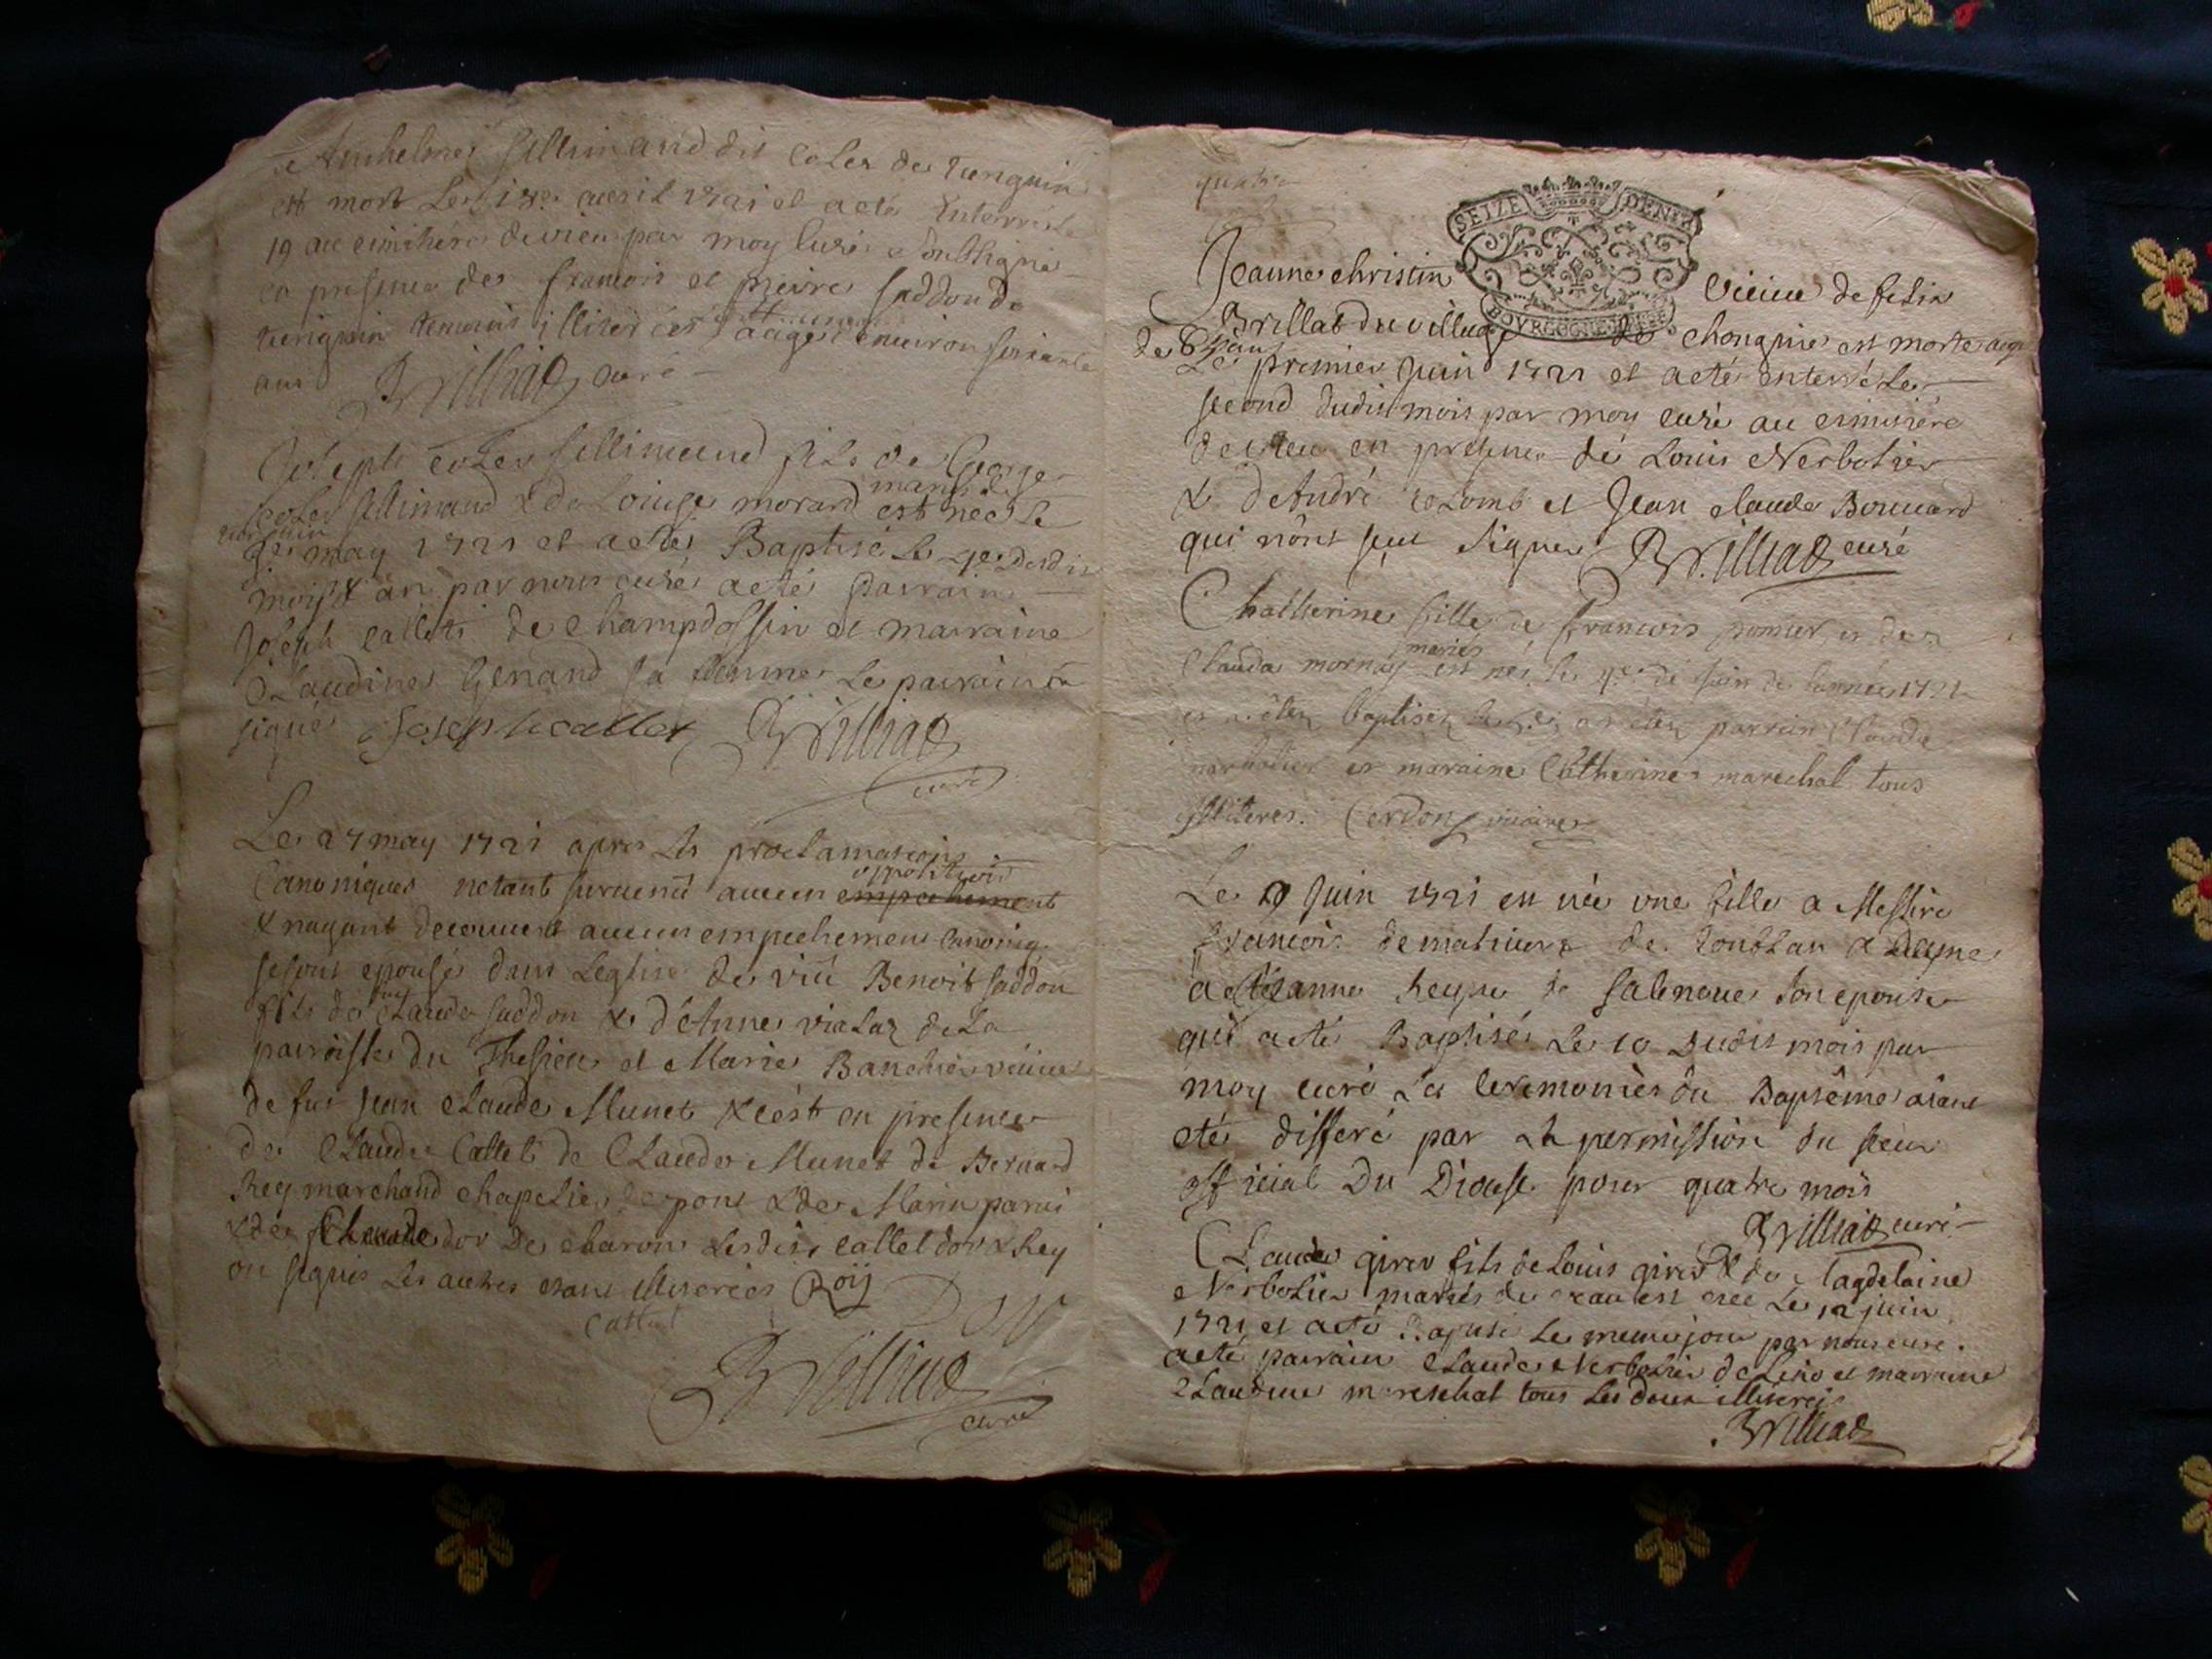 Anthelme Sillimand dit Coler de
est mort le 18e avril 1721 et a eté Enterré le
19 au cimitière de vieu par moy Curé Soussigné
en presence de francois et pierre suddon de
temoins illiterés aagé environ soixante
ans Brilliat curé
Joseph Coler Sillimand fils de George
Coler Sillimand & de Louise morard mariés est né le
may 1721 et a eté Baptisé le dudit
mois & an par nous curé a eté parrain
Joseph Callet de Champdossin et marraine
Claudine Genand sa femme Le parrain a
signé Joseph callet Brilliat
curé
Le 27 may 1721 apres les proclamations
Canoniques n'etant survenû aucun empechement opposition
& n'ayant decouvert aucun empechement canoniq.
se sont epousés dans L'eglise de viû Benoit suddon
fils de feu Claude suddon & d'Anne vialaz de la
parroisse du Thesieu et Marie Banchet veuve
de fut Jean Claude Munet & c'est en presence
de Claude Callet de Claude Munet de Bernard
Rey marchand chapelier de pont & de Marin parni
& de Claude dor De charon Lesdits callet dor & Rey
on signés Les autres etant illiterées Roÿ
Callet Dor
Brilliat
curé
quatre
SEIZE DENIERS
BOURGOGNE
Jeanne christin veuve de felix
Brillat du village de chongnes est morte aagé
de ans
Le premier Juin 1721 et a eté enterré Le
second dudit mois par moy curé au cimitière
de vieu en presence de Louis Nerbolier
& d'André colomb et Jean claude Bonnard
qui n'ônt sçut signer Brilliat curé
Chatherine fille de Francois pomier et de
Clauda mornay mariés est née le 4e de juin de l'année 1721
et a êtez baptisez le 5e a êtez parrein Claude
narbollier et maraine Catherine marechal tous
jlliteres. Cerdon vicaire
Le 9 Juin 1721 en née une fille a Messire
Francois de mativure de & Dame
Jeanne de Salenoue son epouse
qui a eté Baptisé Le 10 Dudit mois par
moy curé La Ceremonies du Baptême aiant
eté differé par La permission du sieur
official Du Diocese pour quatre mois
Brilliat curé
Claude girer fils de Louis girer & de Magdelaine
Nerbolier mariés de est neé Le 12 juin
1721 et a eté Baptisé Le meme jour par nous curé.
a eté parrain Claude Nerbolier de et marraine
Claudine mareschal tous Les deux illiterés
Brilliat